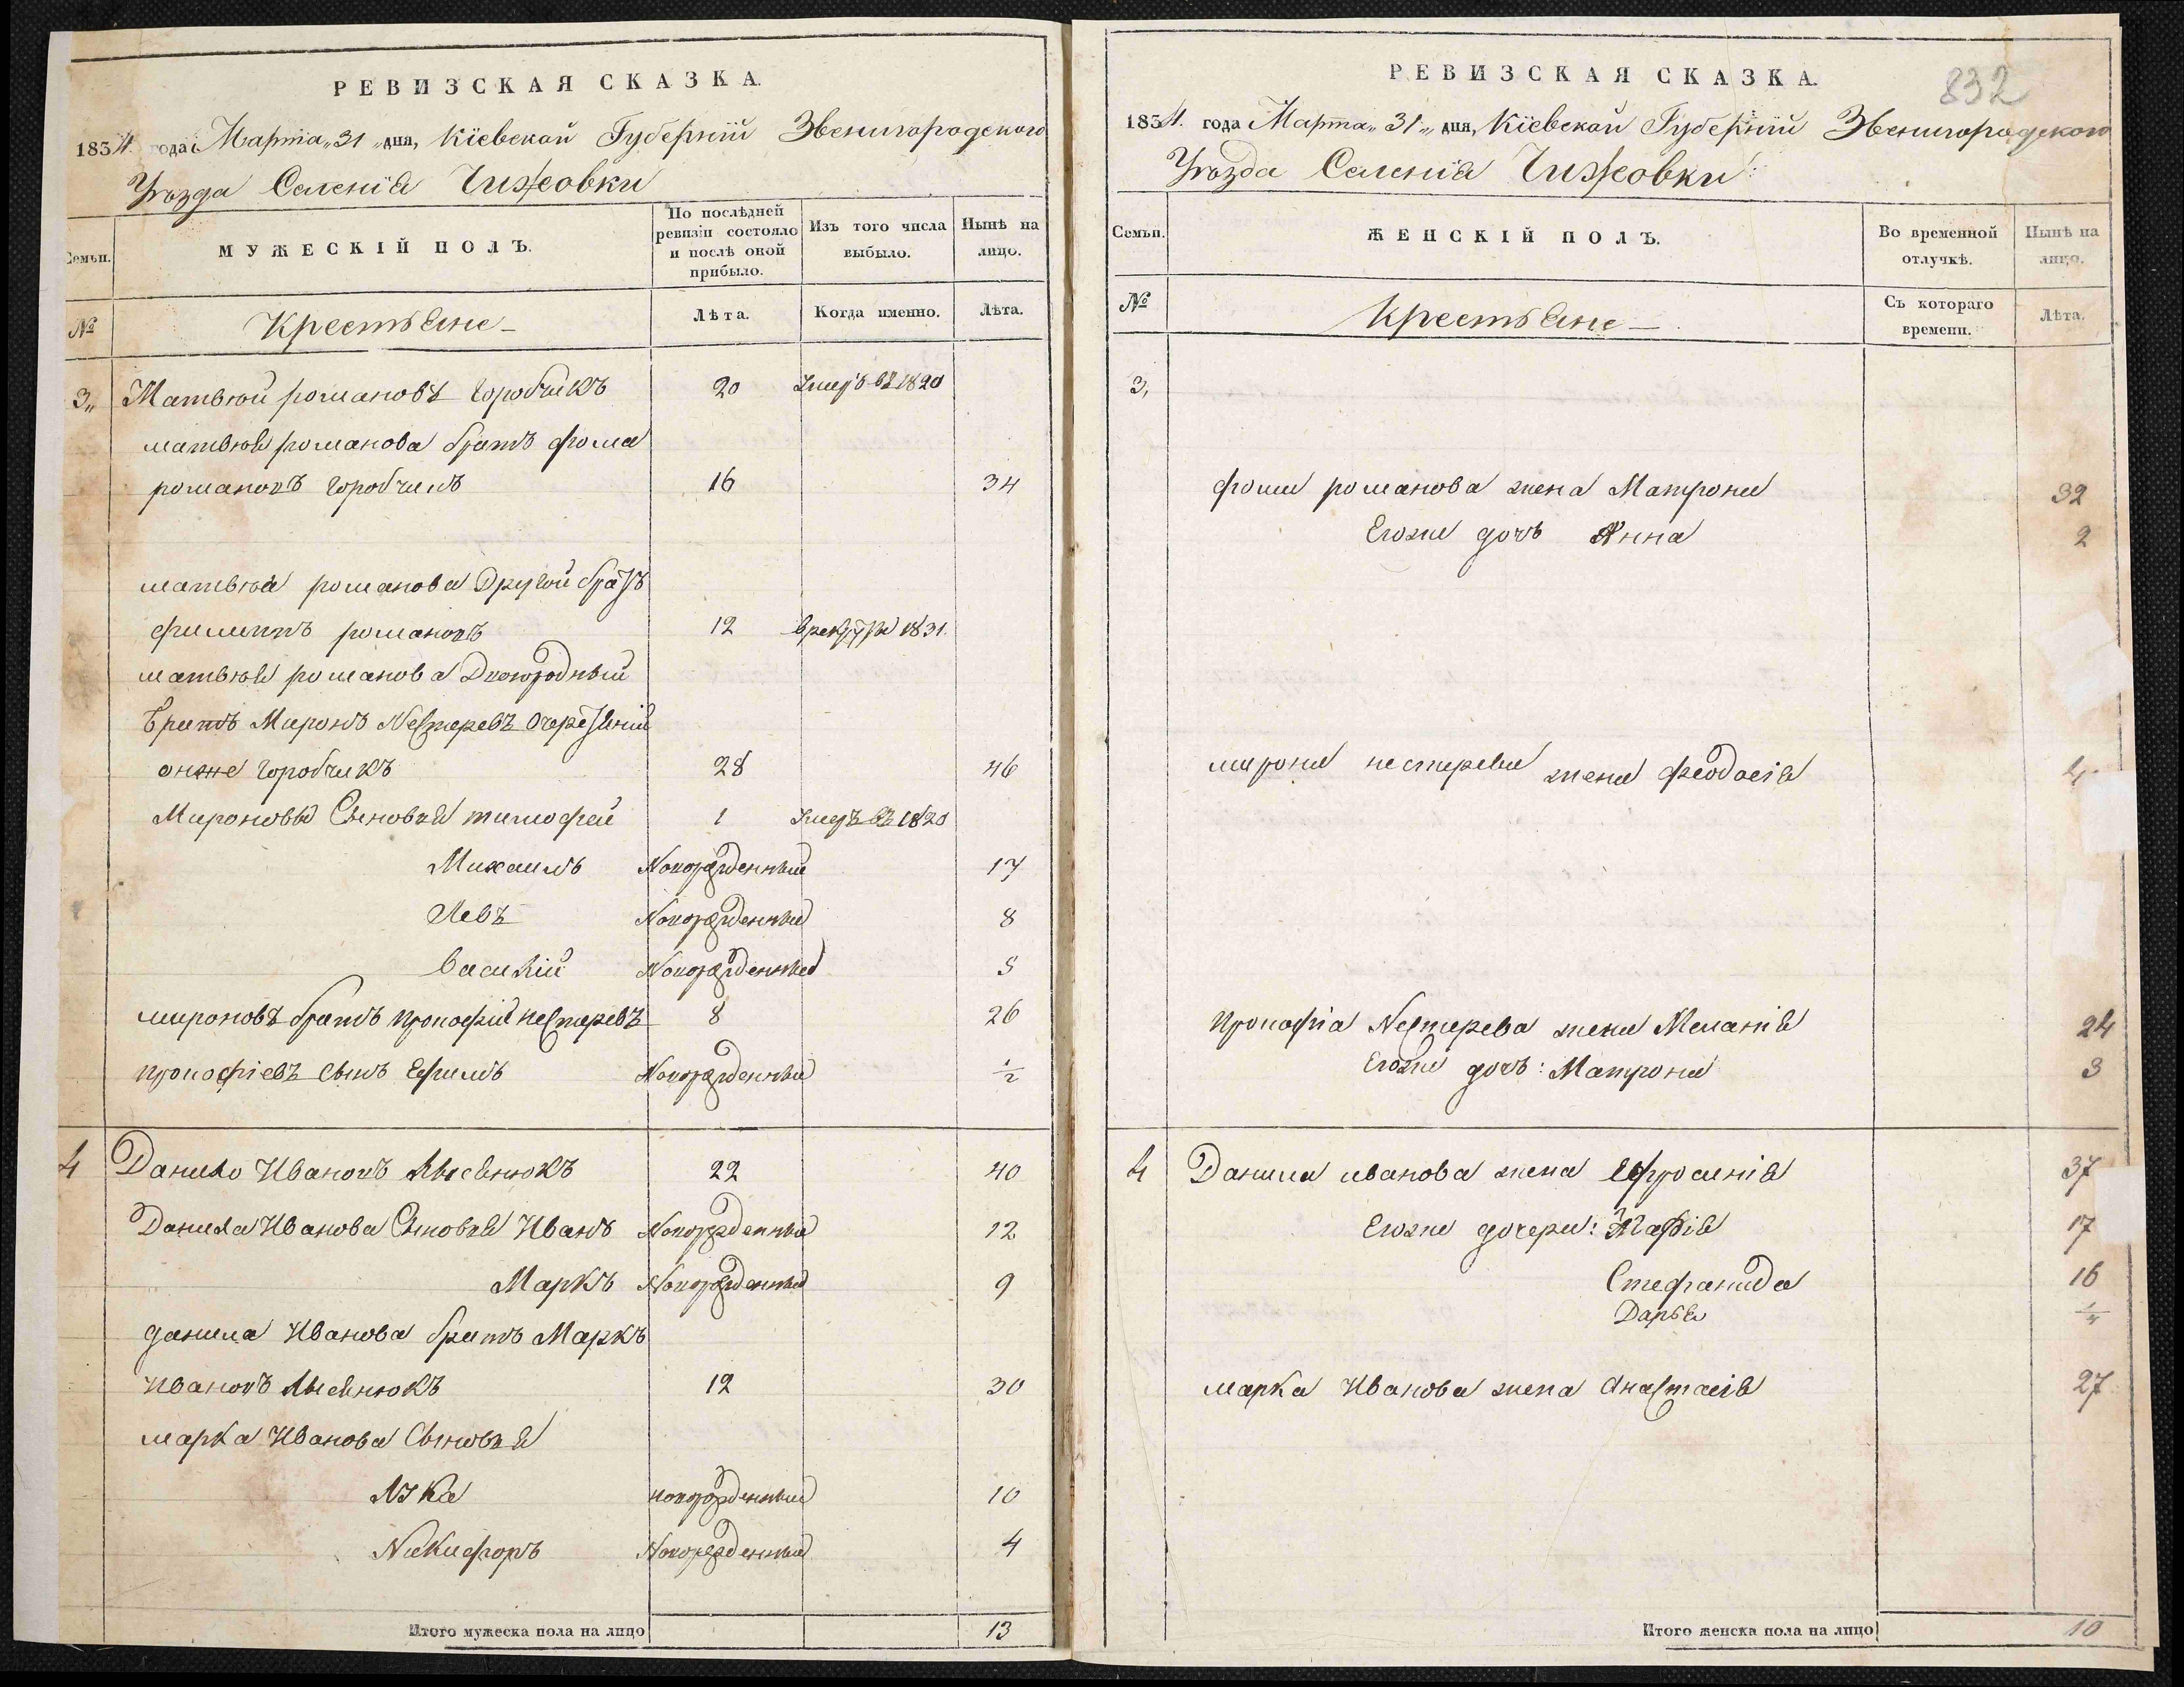 РЕВИЗСКАЯ СКАЗКА.
1834 года Марта „31 „ дня, Кіевской Губерніи Звенигородского
Уѣзда Селенія Чижовки
Семьи.
МУЖЕСКІЙ ПОЛЪ.
По послѣдней ревизіи состояло и послѣ оной прибыло.
Изъ того числа выбыло.
Нынѣ на лицо.
№
Крестьяне
Лѣта.
Когда именно.
Лѣта.
3„ Матвѣй романовъ Горобчикъ 20 Умеръ въ 1820
матвѣя романова братъ фома
романовъ Горобчикъ 16 34
матвѣя романова Другой братъ
филиппъ романовъ 12 Врекруты 1831.
матвѣя романова Двоюродный
братъ Миронъ Нестеревъ
онже Горобчикъ 28 46
Мироновы Сыновья тимофей 1 Умеръ въ 1820
Михаилъ Новорожденный 17
Левъ Новорожденный 8
Василій Новорожденный 5
мироновъ братъ прокофій нестеревъ 8 26
прокофіевъ сынъ Ефимъ Новорожденный ½
4 Данило Ивановъ Лысянюкъ 22 40
Данила Иванова Сыновья Иванъ Новорожденный 12
Маркъ Новорожденный 9
данила Иванова братъ Маркъ
Ивановъ Лысянюкъ 12 30
марка Иванова Сыновья
Лука новорожденный 10
Никифоръ Новорожденный 4
Итого мужеска пола на лицо 13
832
РЕВИЗСКАЯ СКАЗКА.
1834 года Марта „31„ дня, Кіевской Губерніи Звенигородского
Уѣзда Селенія Чижовки
Семьи.
ЖЕНСКІЙ ПОЛЪ.
Во временной отлучкѣ.
Нынѣ на лицо.
№
Крестьяне
Съ котораго времени.
Лѣта.
3,
фомы романова жена Матрона 32
Егоже дочь Анна 2
мирона нестерева жена феодосія
прокофіа Нестерева жена Меланія 24
Егоже дочь: Матрона 3
4 Данила иванова жена Ефросинія 37
Егоже дочери: Агафія 17
Стефанида 16
Дарья
марка Иванова жена Анастасія 27
Итого женска пола на лицо 10